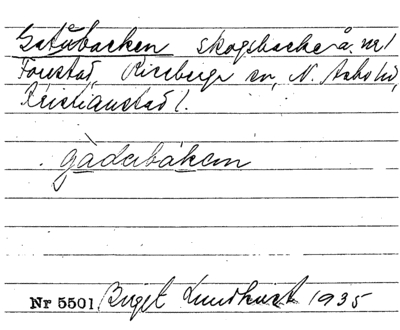 Gatubacken skogsbacke å nr 1
Forestad, Riseberga sn, N. Åsbo hd,
Kristianstad l.
gàdubákən
Nr 5501 Birgit Lundkvist 1935